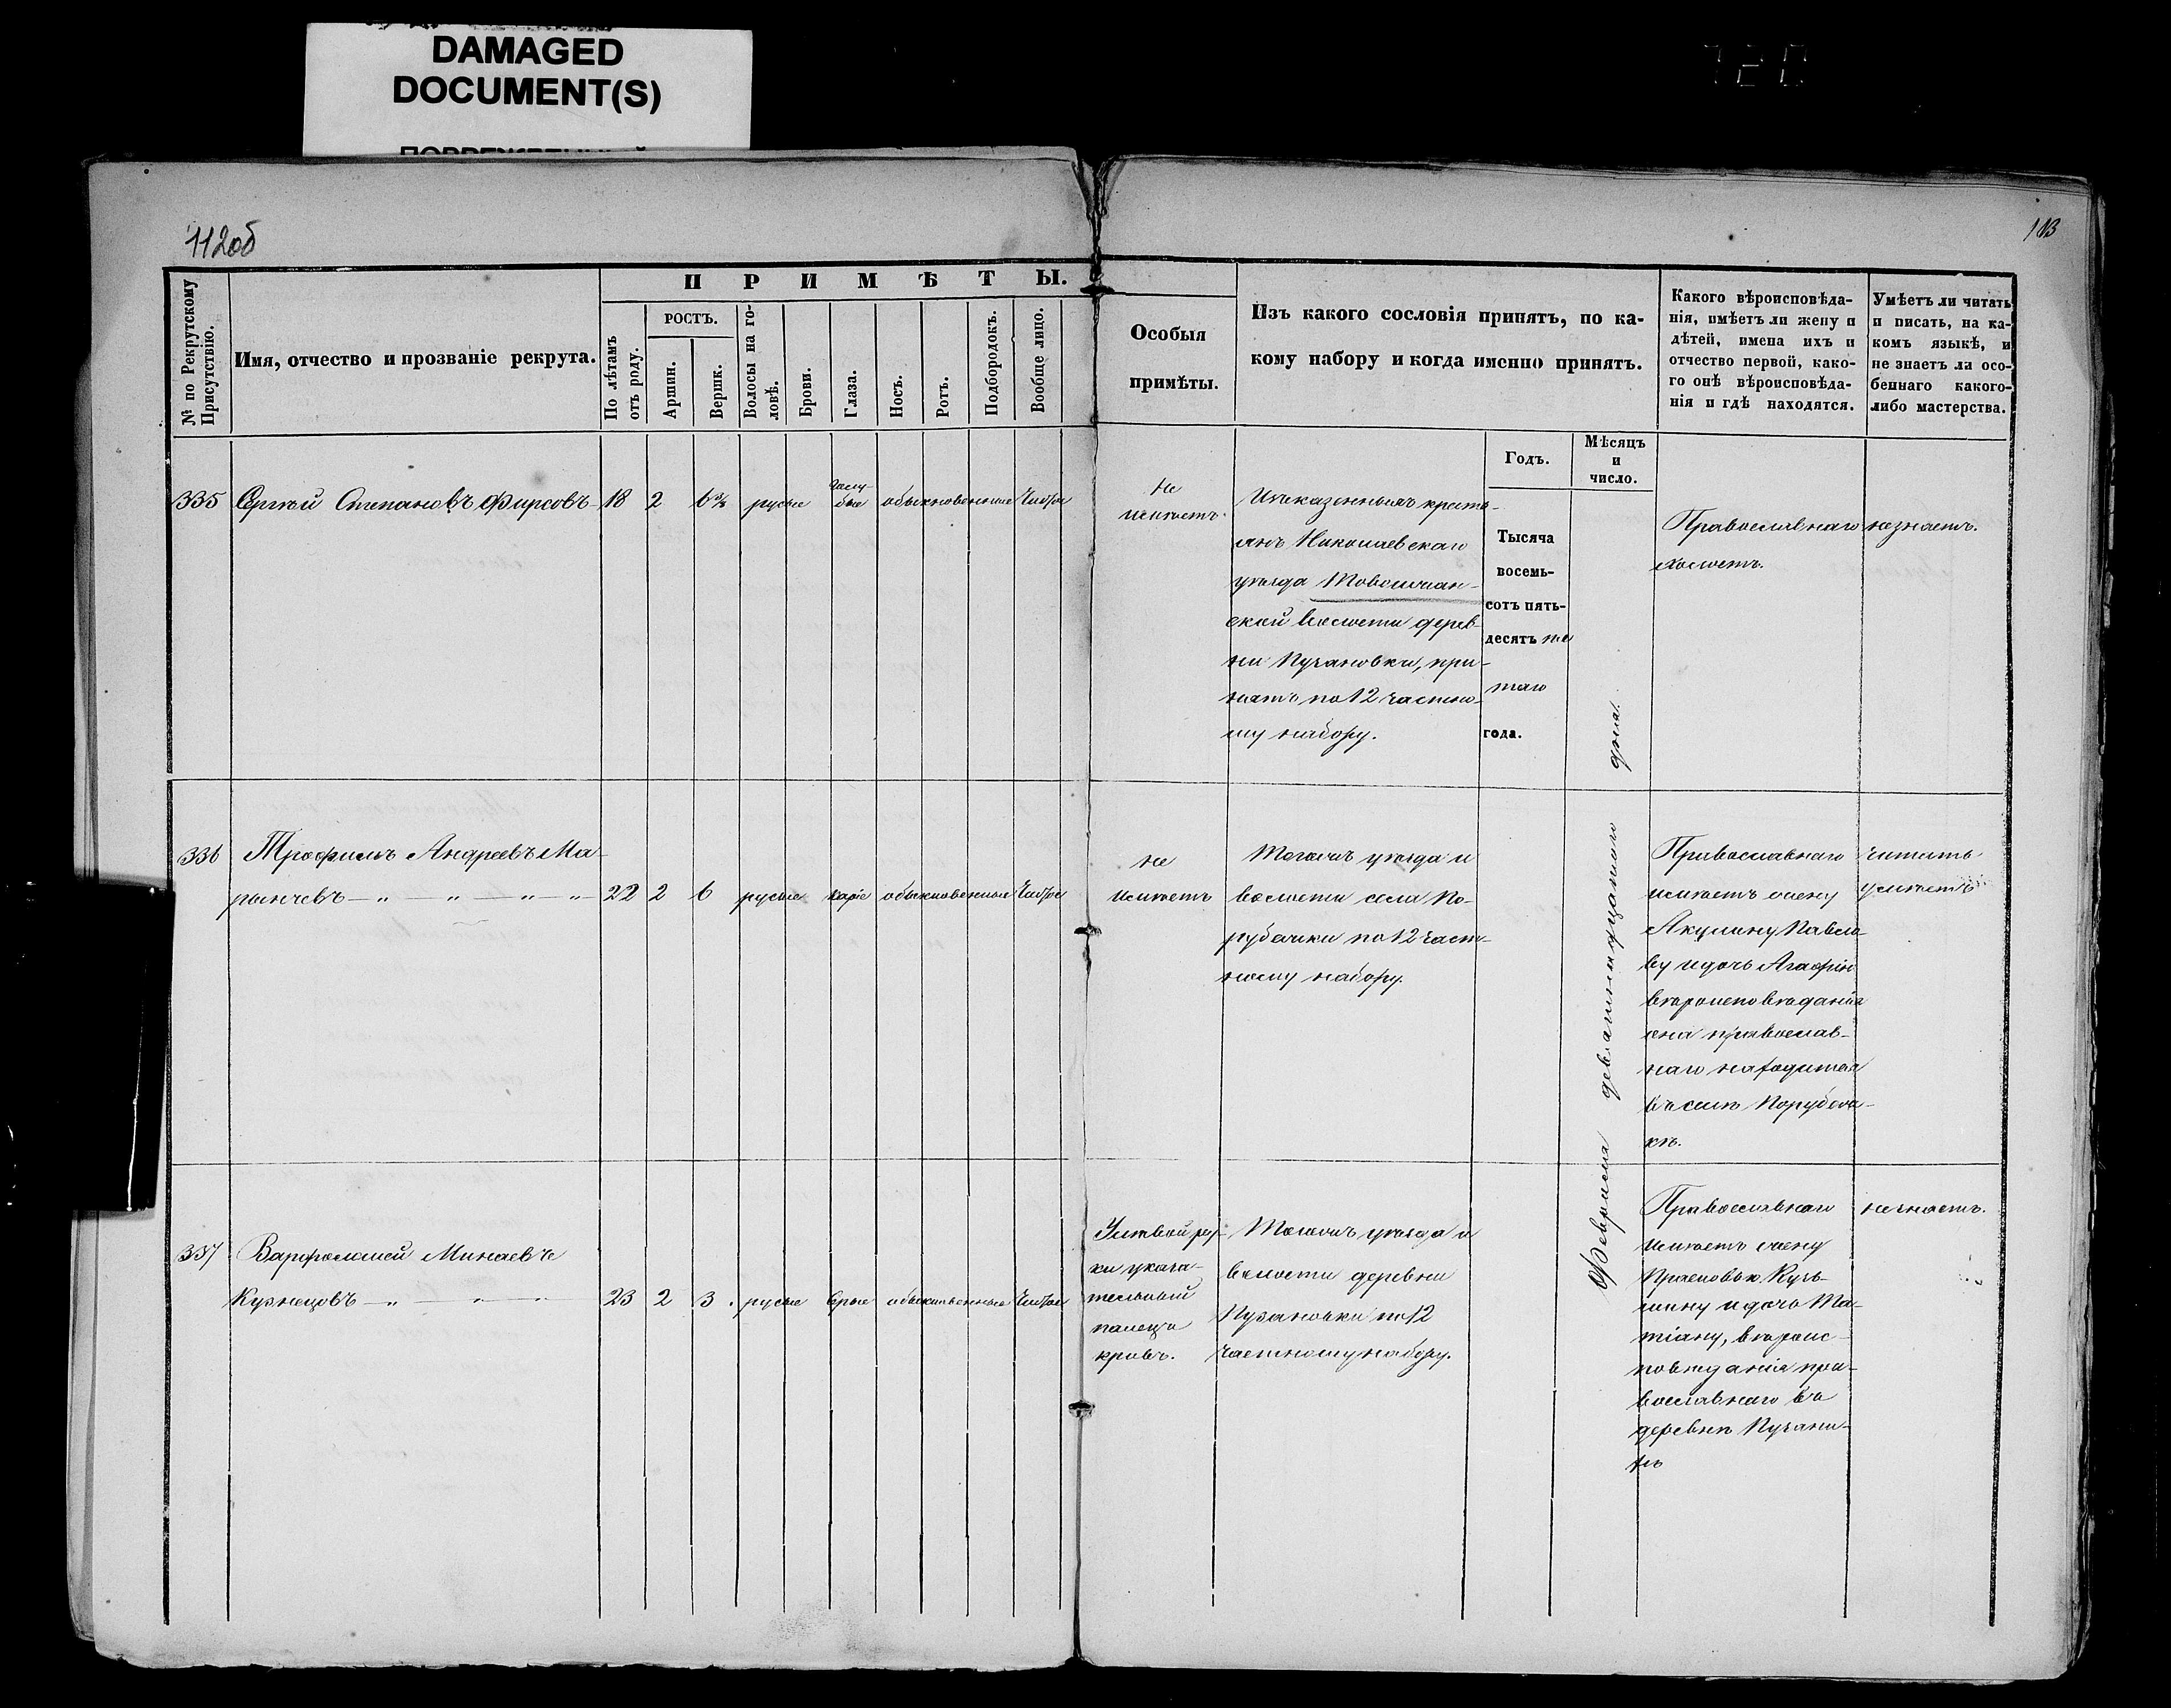 DAMAGED
DOCUMENT(S)
112об
113
№ по Рекрутскому
Присутствію.
Имя, отчество и прозваніе рекрута.
ПРИМѢТЫ.
По лѣтамъ
отъ роду.
РОСТЪ.
Аршин.
Вершк.
Волосы на го-
ловѣ.
Брови.
Глаза.
Носъ.
Ротъ.
Подбородокъ.
Вообще лицо.
Особыя
примѣты.
Изъ какого сословія принятъ, по ка-
кому набору и когда именно принятъ.
Какого вѣроисповѣда-
нія, имѣетъ ли жену и
дѣтей, имена ихъ и
отчество первой, како-
го онѣ вѣроисповѣда-
нія и гдѣ находятся.
Умѣетъ ли читать
и писать, на ка-
комъ языкѣ, и
не знаетъ ли осо-
беннаго какого-
либо мастерства.
Годъ.
Мѣсяцъ
и
число.
335 Сергѣй Степановъ Фирсовъ 18 2 русые
голу-
бые
обыкновенные чистое
Не
имѣетъ.
Изъ казенныхъ кресть-
янъ Николаевскаго
уѣзда
ской волости дерев-
ни Пузановки, при-
нятъ по 12 частно-
му набору.
Тысяча
восемь-
сотъ пять-
десятъ пя
таго
года.
Февраля девятнадцатаго дня.
Православнаго
холостъ.
не знаетъ.
336 Трофимъ Андреевъ Ма-
рычевъ 22 2 6 русые каріе обыкновенные чистое
не
имѣетъ
Тогожъ уѣзда и
волости села По-
рубежки по 12 част-
ному набору.
Православнаго
имѣетъ жену
Акулину Павло-
ву и дочь Агафію
вѣроисповѣданія
она православ-
наго находится
въ селѣ Порубеж-
кѣ.
читать
умѣетъ
337 Варфоломей Минаевъ
Кузнецовъ 23 2 3 русые сѣрые обыкновенные чистое
У лѣвой ру-
ки указа-
тельный
палецъ
кривъ.
Тогожъ уѣзда и
волости деревни
Пузановки по 12
частному набору.
Православнаго
имѣетъ жену
Прасковью Кузь-
мину и дочь Та-
тіану, вѣроис-
повѣданія пра-
вославнаго въ
деревнѣ
не знаетъ.